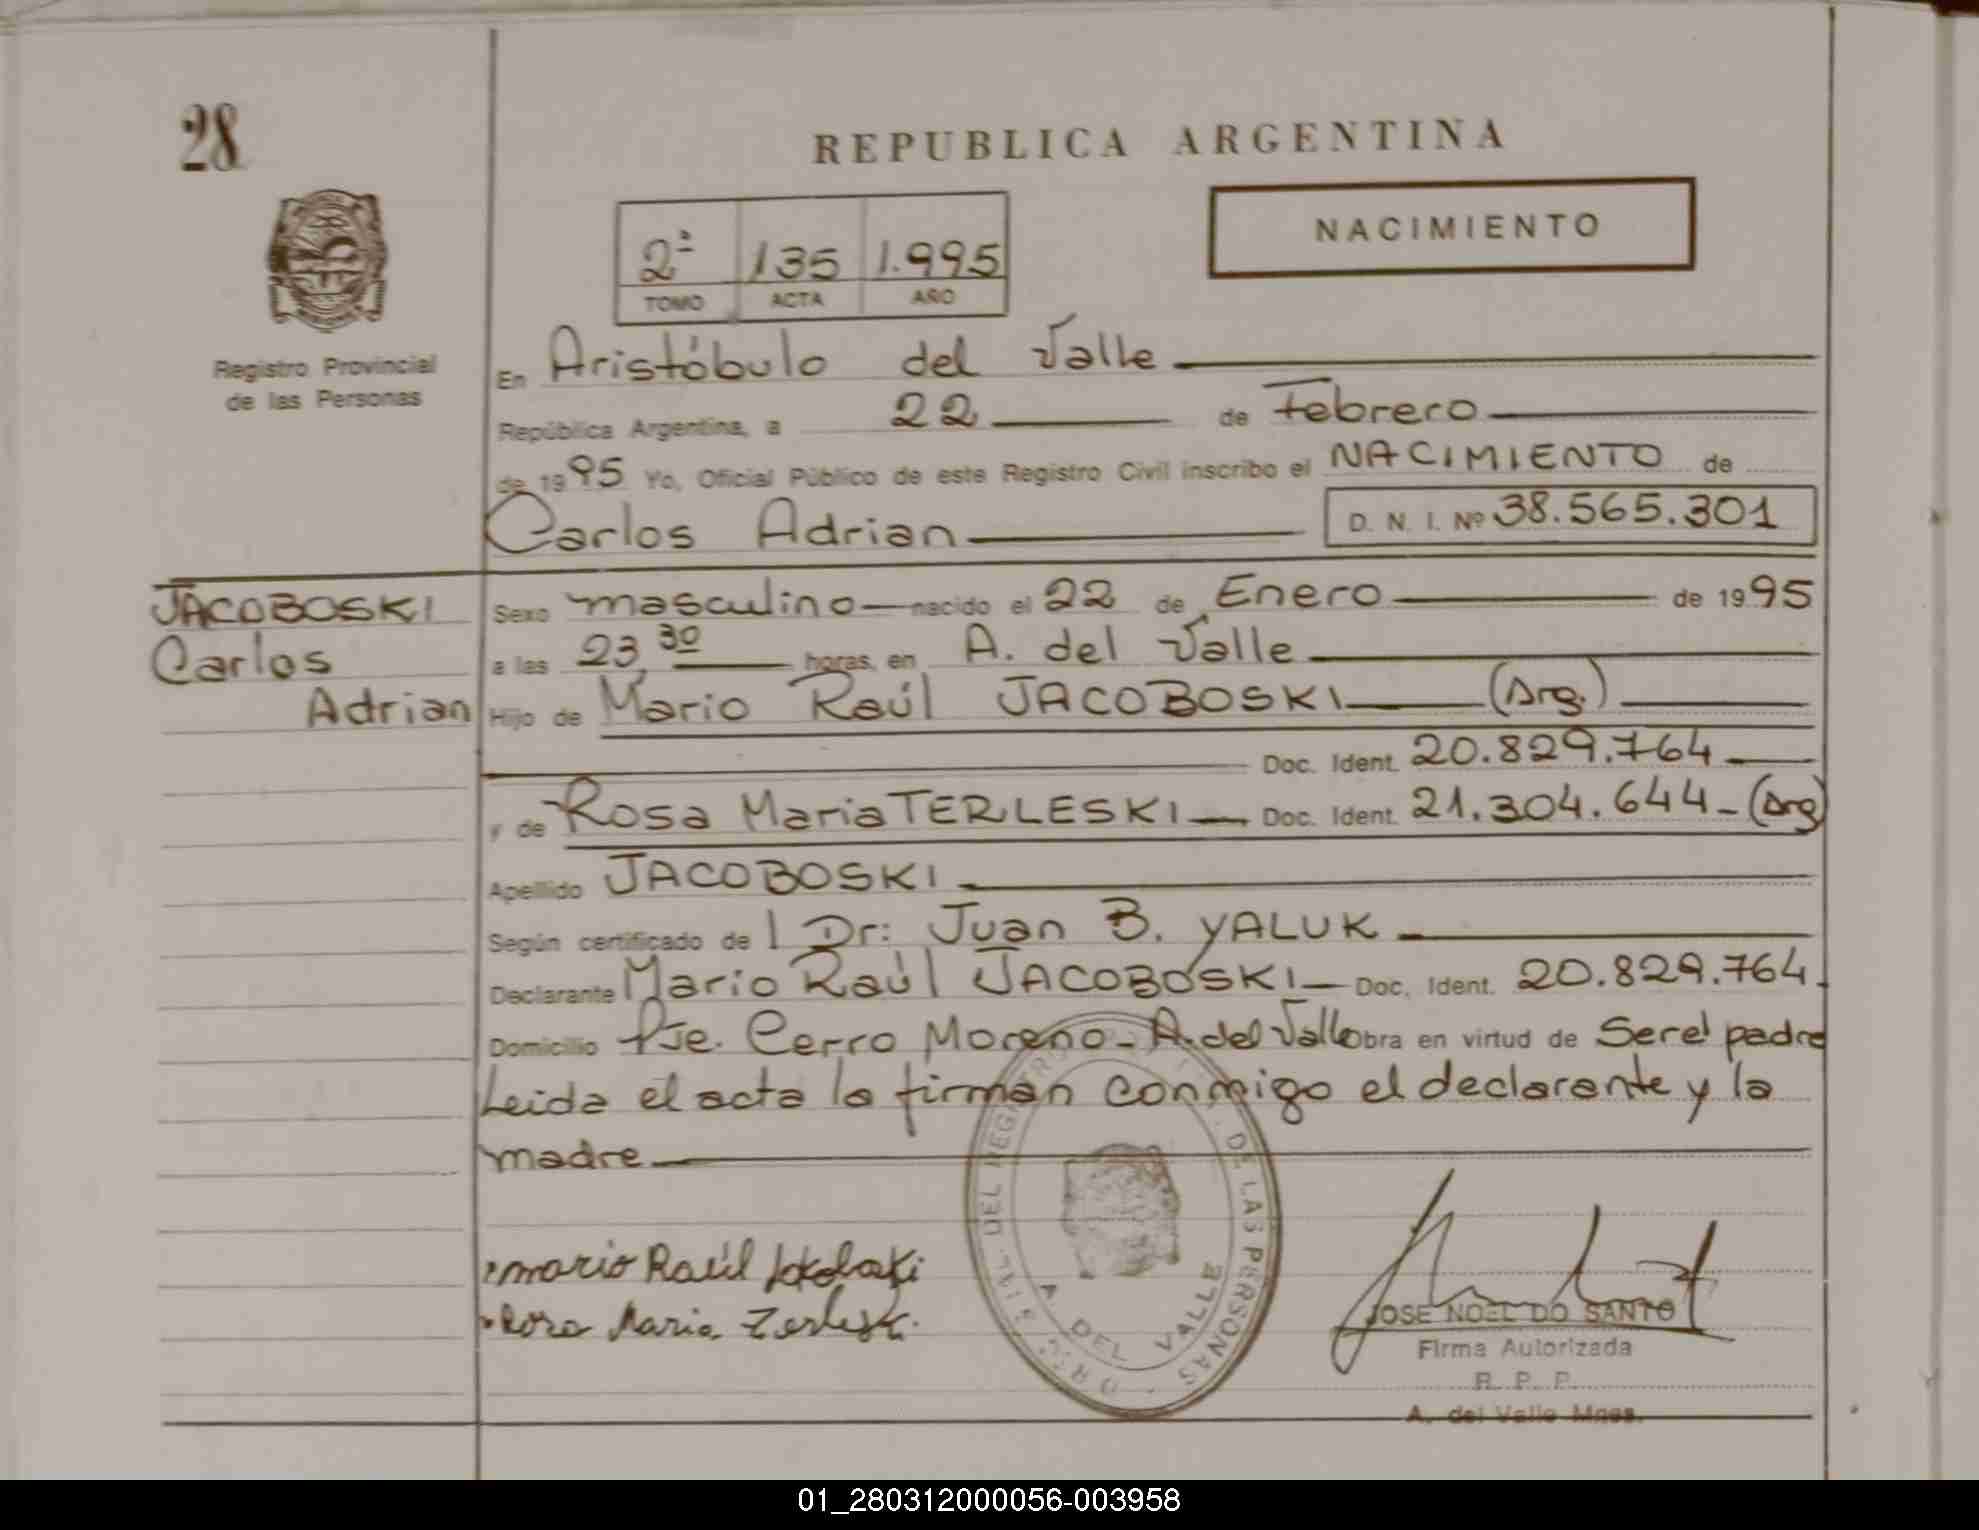 28
REPUBLICA ARGENTINA
NACIMIENTO
2ª 135 1.995
TOMO ACTA AÑO
Registro Provincial
de las Personas
En Aristóbulo del Valle
República Argentina, a 22 de Febrero
de 1995 Yo, Oficial Público de este Registro Civil inscribo el NACIMIENTO de
Carlos Adrian D. N. I. Nº 38.565.301
JACOBOSKI
Carlos
Adrian
Sexo masculino nacido el 22 de Enero de 1995
a las 23,30 horas, en A. del Valle
Hijo de Mario Raúl JACOBOSKI (Arg.)
Doc. Ident. 20.829.764
y de Rosa Maria TERLESKI Doc. Ident. 21.304.644 (Arg)
Apellido JACOBOSKI
Según certificado de l Dr: Juan B. YALUK
Declarante Mario Raúl JACOBOSKI Doc. Ident. 20.829.764
Domicilio Pje. Cerro Moreno - A. del Valle Obra en virtud de Ser el padre
Leida el acta la firman conmigo el declarante y la
madre
DEL REGISTRO DE LAS PERSONAS
A. DEL VALLE
mario Raúl
Rosa Maria Terleski
JOSE NOEL DO SANTO
Firma Autorizada
R. P. P.
A. del Valle Mnes.
01_280312000056-003958